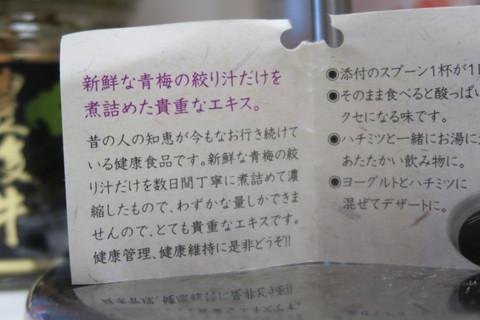 新鮮な青梅の絞り汁だけを
煮詰めた貴重なエキス。
昔の人の知恵が今もなお行き続けて
いる健康食品です。新鮮な青梅の絞
り汁だけを数日間丁寧に煮詰めて濃
縮したもので、わずかな量しかできま
せんので、とても貴重なエキスです。
健康管理、健康維持に是非どうぞ!!
●添付のスプーン1杯が1
●そのまま食べると酸っぱい
クセになる味です。
●ハチミツと一緒にお湯に
あたたかい飲み物に。
●ヨーグルトとハチミツに
混ぜてデザートに。